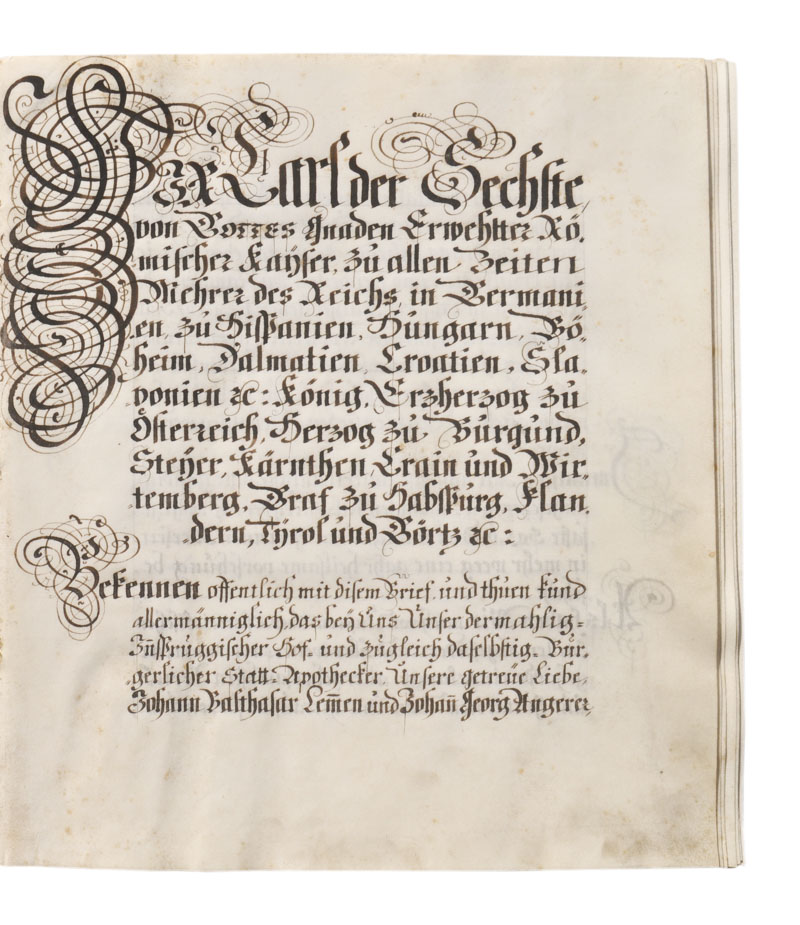 WIR Carl der Sechste,
von GOTTES Gnaden Erwehlter Rö.
mischer Kaÿser, zu allen Zeiten
Mehrer des Reichs, in Germani
en, zu Hispanien, Hungarn, Bö
heim, Dalmatien, Croatien, Sla.
vonien ꝛc: König, Erzherzog zu
Österreich, Herzog zu Burgund,
Steÿer, Kärnthen, Crain und Wir,
temberg, Graf zu Habspurg, Flan
dern, Tÿrol und Görtz ꝛc:
Bekennen offentlich mit disem Brief, und thuen kund
allermänniglich, das beÿ Uns Unser dermahlig=
Inspruggischer Hof= und zugleich daselbstig= Bur,
gerlicher Statt= Apothecker, Unsere getreüe Liebe,
Johann Balthasar Lem̄en und Johan̄ Georg Angerer,